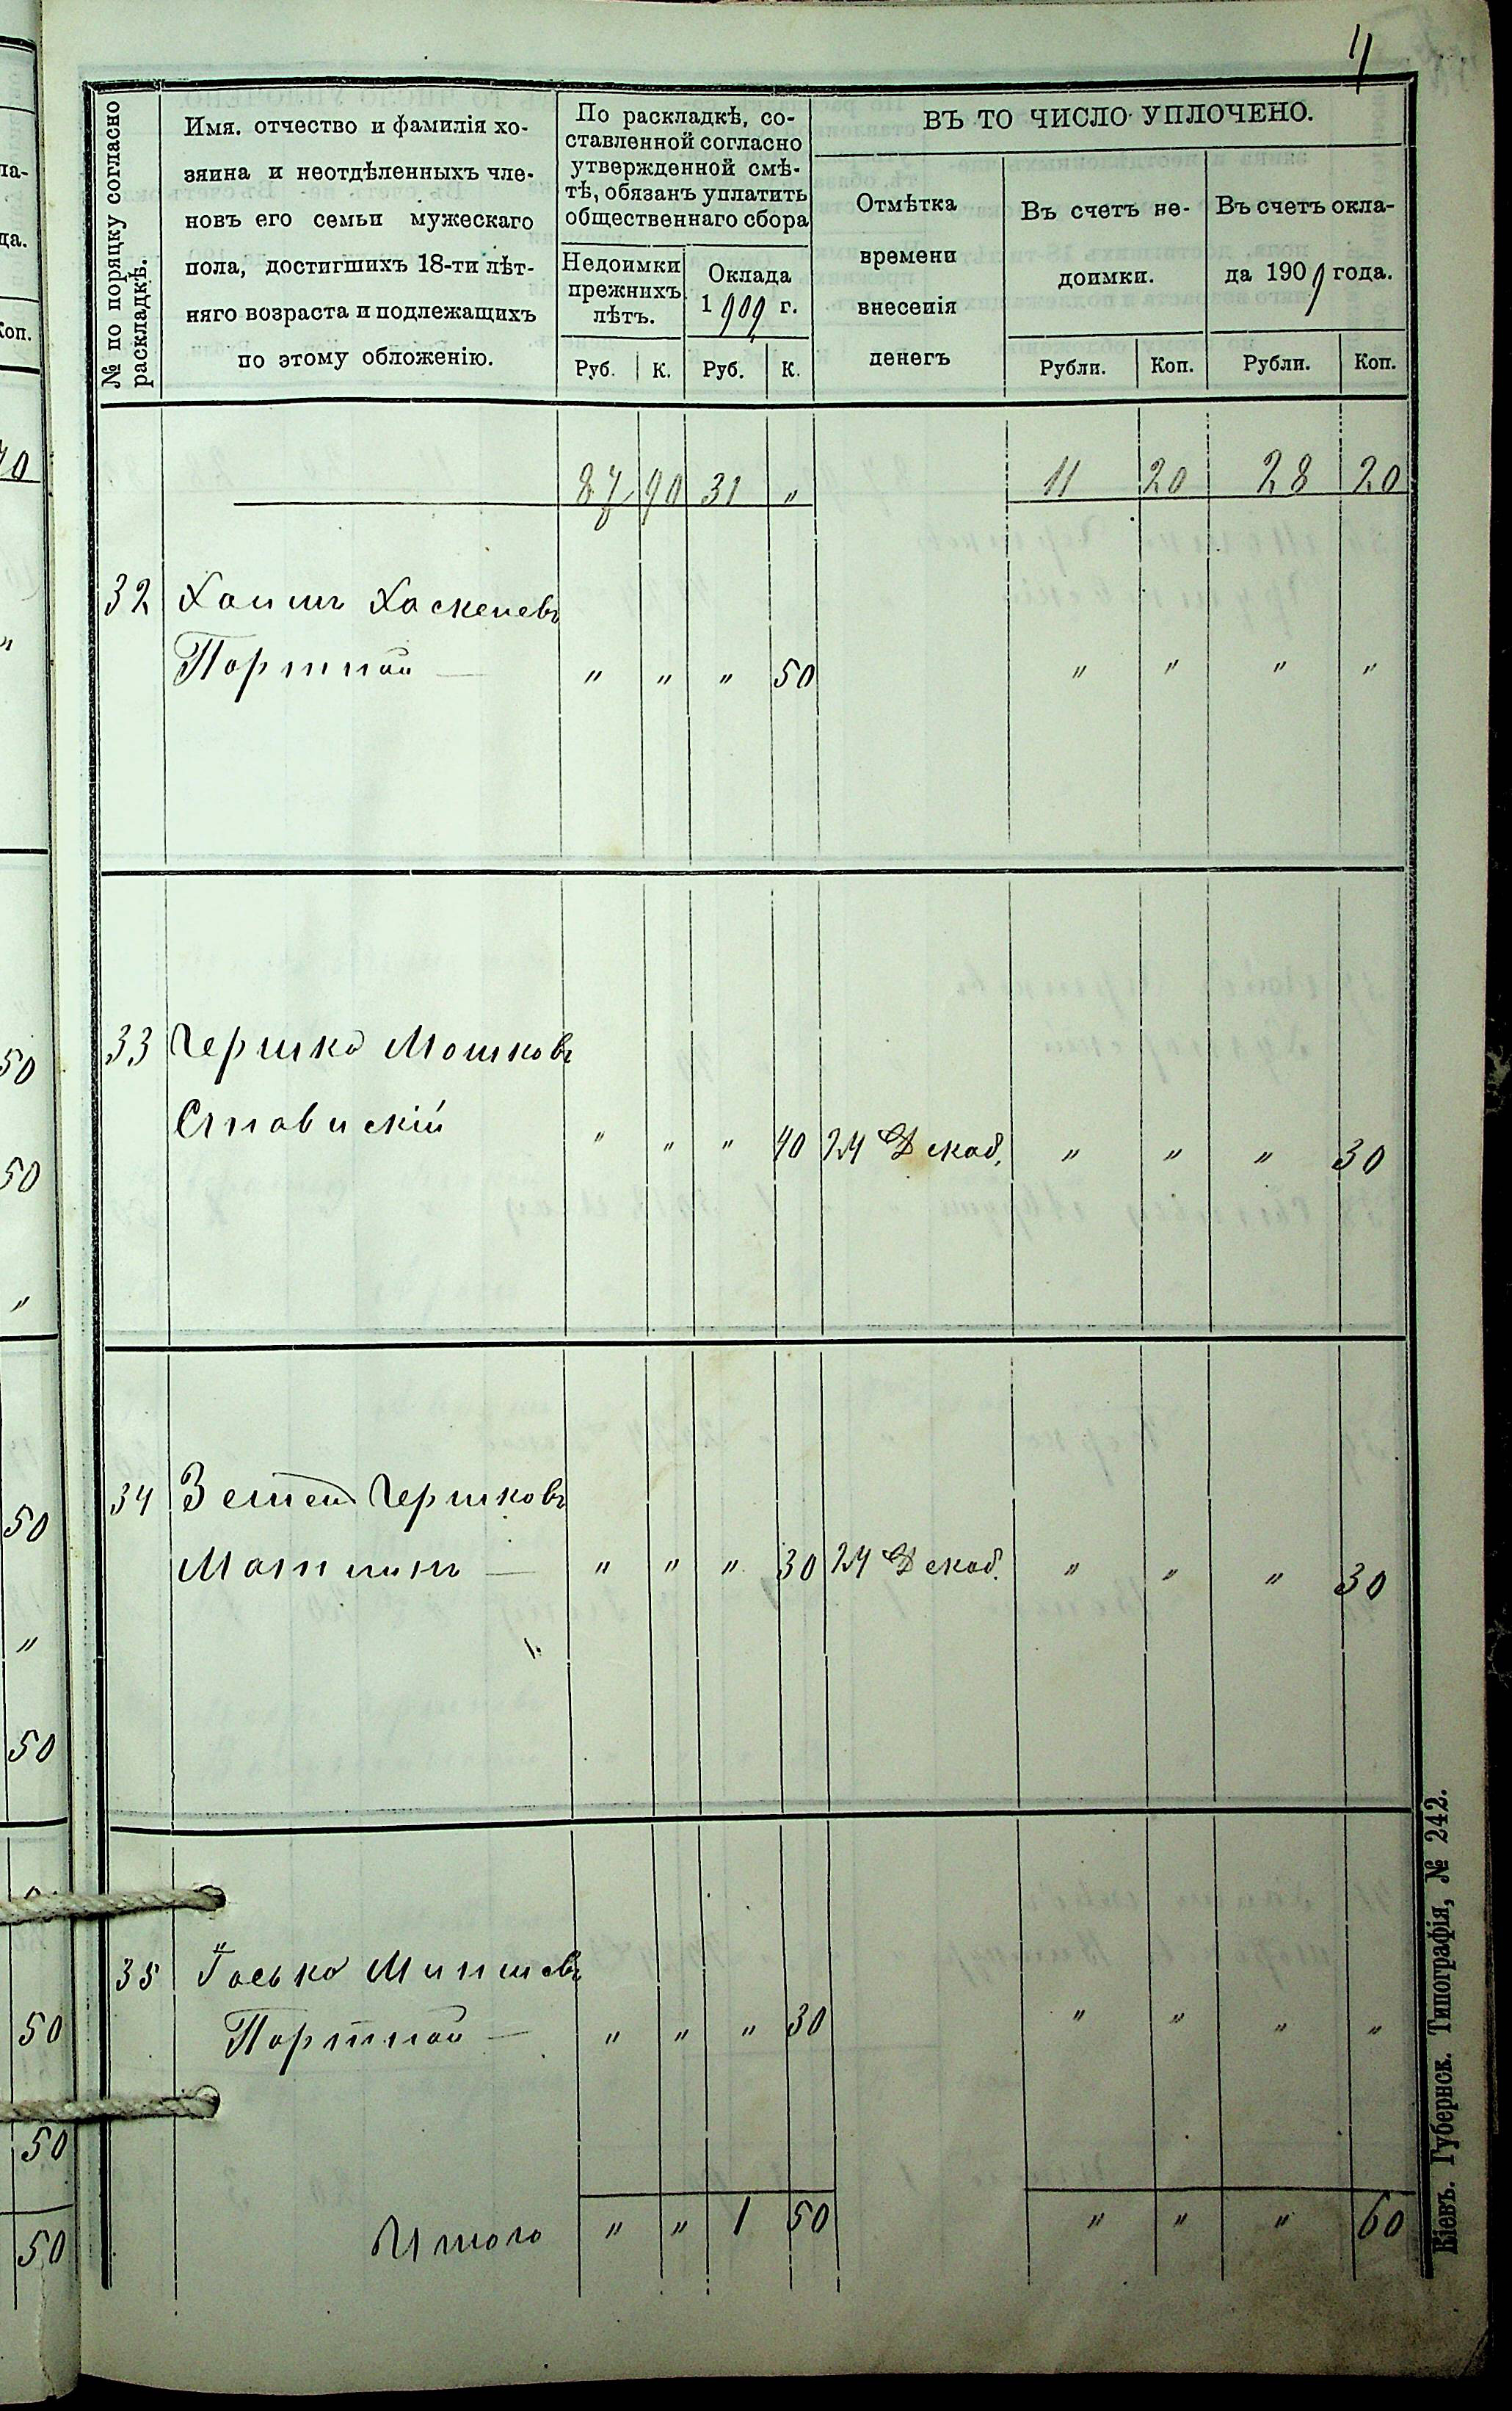 4
№ по поряцку согласно раскладкѣ.
Имя. отчество и фамилія хо-
зяина и неотдѣленныхъ чле-
новъ его семьи мужескаго
пола, достигшихъ 18-ти лѣт-
няго возраста и подлежащихъ
по этому обложенію.
По раскладкѣ, со-
ставленной согласно
утвержденной смѣ-
тѣ, обязанъ уплатить
общественнаго сбора
Недоимки
прежнихъ
лѣтъ.
Оклада
1909 г.
Руб. К. Руб. К.
ВЪ ТО ЧИСЛО УПЛОЧЕНО.
Отмѣтка
времени
внесенія
денегъ
Въ счетъ не-
доимки.
Рубли. Коп.
Въ счетъ окла-
да 1909 года.
Рубли. Коп.
87 90 31 " 11 20 28 20
32 Хаимъ Хаскелевъ
Портной — " " " 50 " " " "
33 Гершко Мошковъ
Ставискій " " " 40 24 Декаб. " " " 30
34 Зейтель Гершковъ
" " " 30 24 Декаб. " " " 30
35 Іосько
Портной — " " " 30 " " " "
Итого " " 1 50 " " " 60
Кіевъ. Губернск. Типографія, № 242.
па-
да.
Коп.
50
50
"
50
"
50
50
50
50